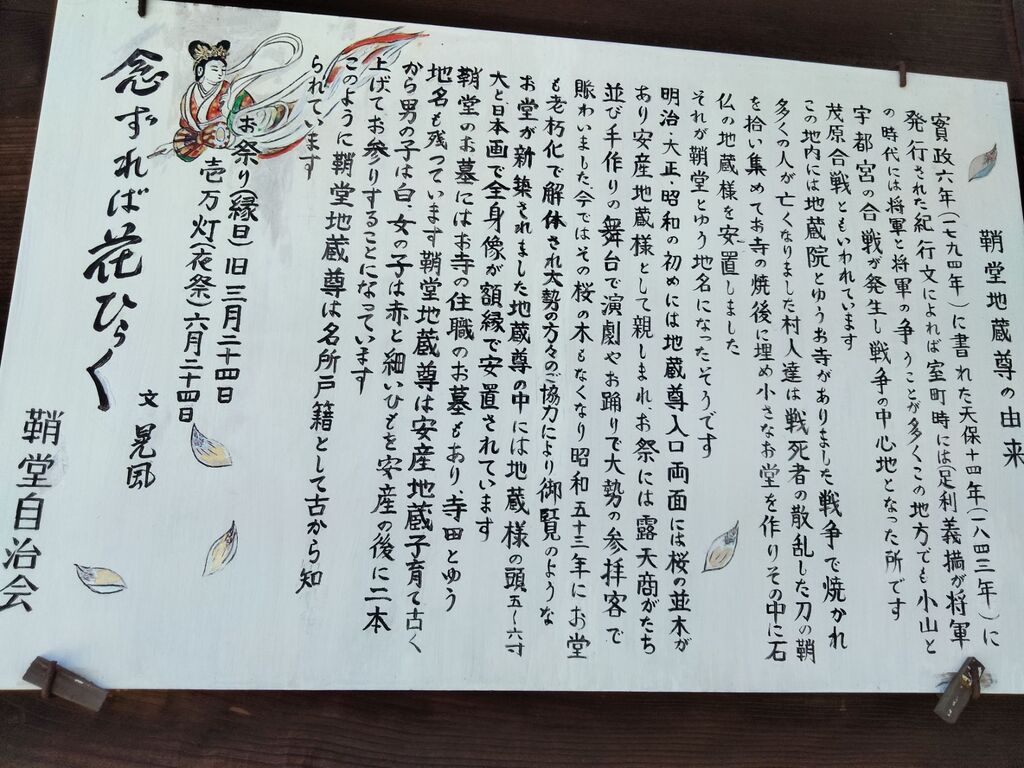 鞘堂地蔵尊の由来
寛政六年(一七九四年)に書れた天保十四年(一八四三年)に
発行された紀行文によれば室町時には(足利義満が将軍
の時代には将軍と将軍の争うことが多くこの地方でも小山と
宇都宮の合戦が発生し戦争の中心地となった所です
茂原合戦ともいわれています
この地内には地蔵院とゆうお寺がありました戦争で焼かれ
多くの人が亡くなりました村人達は戦死者の散乱した刀の鞘
を拾い集めてお寺の焼後に埋め小さなお堂を作りその中に石
仏の地蔵様を安置しました
それが鞘堂とゆう地名になったそうです
明治・大正・昭和の初めには地蔵尊入口両面には桜の並木が
あり安産地蔵様として親しまれ、お祭には露天商がたち
並び手作りの舞台で演劇やお踊りで大勢の参拝客で
賑わいました、今ではその桜の木もなくなり昭和五十三年にお堂
も老朽化で解体され大勢の方々のご協力により御覧のような
お堂が新築されました地蔵尊の中には地蔵様の頭五〜六寸
大と日本画で全身像が額縁で安置されています
鞘堂のお墓にはお寺の住職のお墓もあり寺田とゆう
地名も残っています鞘堂地蔵尊は安産地蔵子育て古く
から男の子は白、女の子は赤と細いひもを安産の後に二本
上げてお参りすることになっています
このように鞘堂地蔵尊は名所戸籍として古から知
られています
お祭り(縁日)旧三月二十四日
壱万灯(夜祭)六月二十四日
念ずれば花ひらく
文 晃風
鞘堂自治会